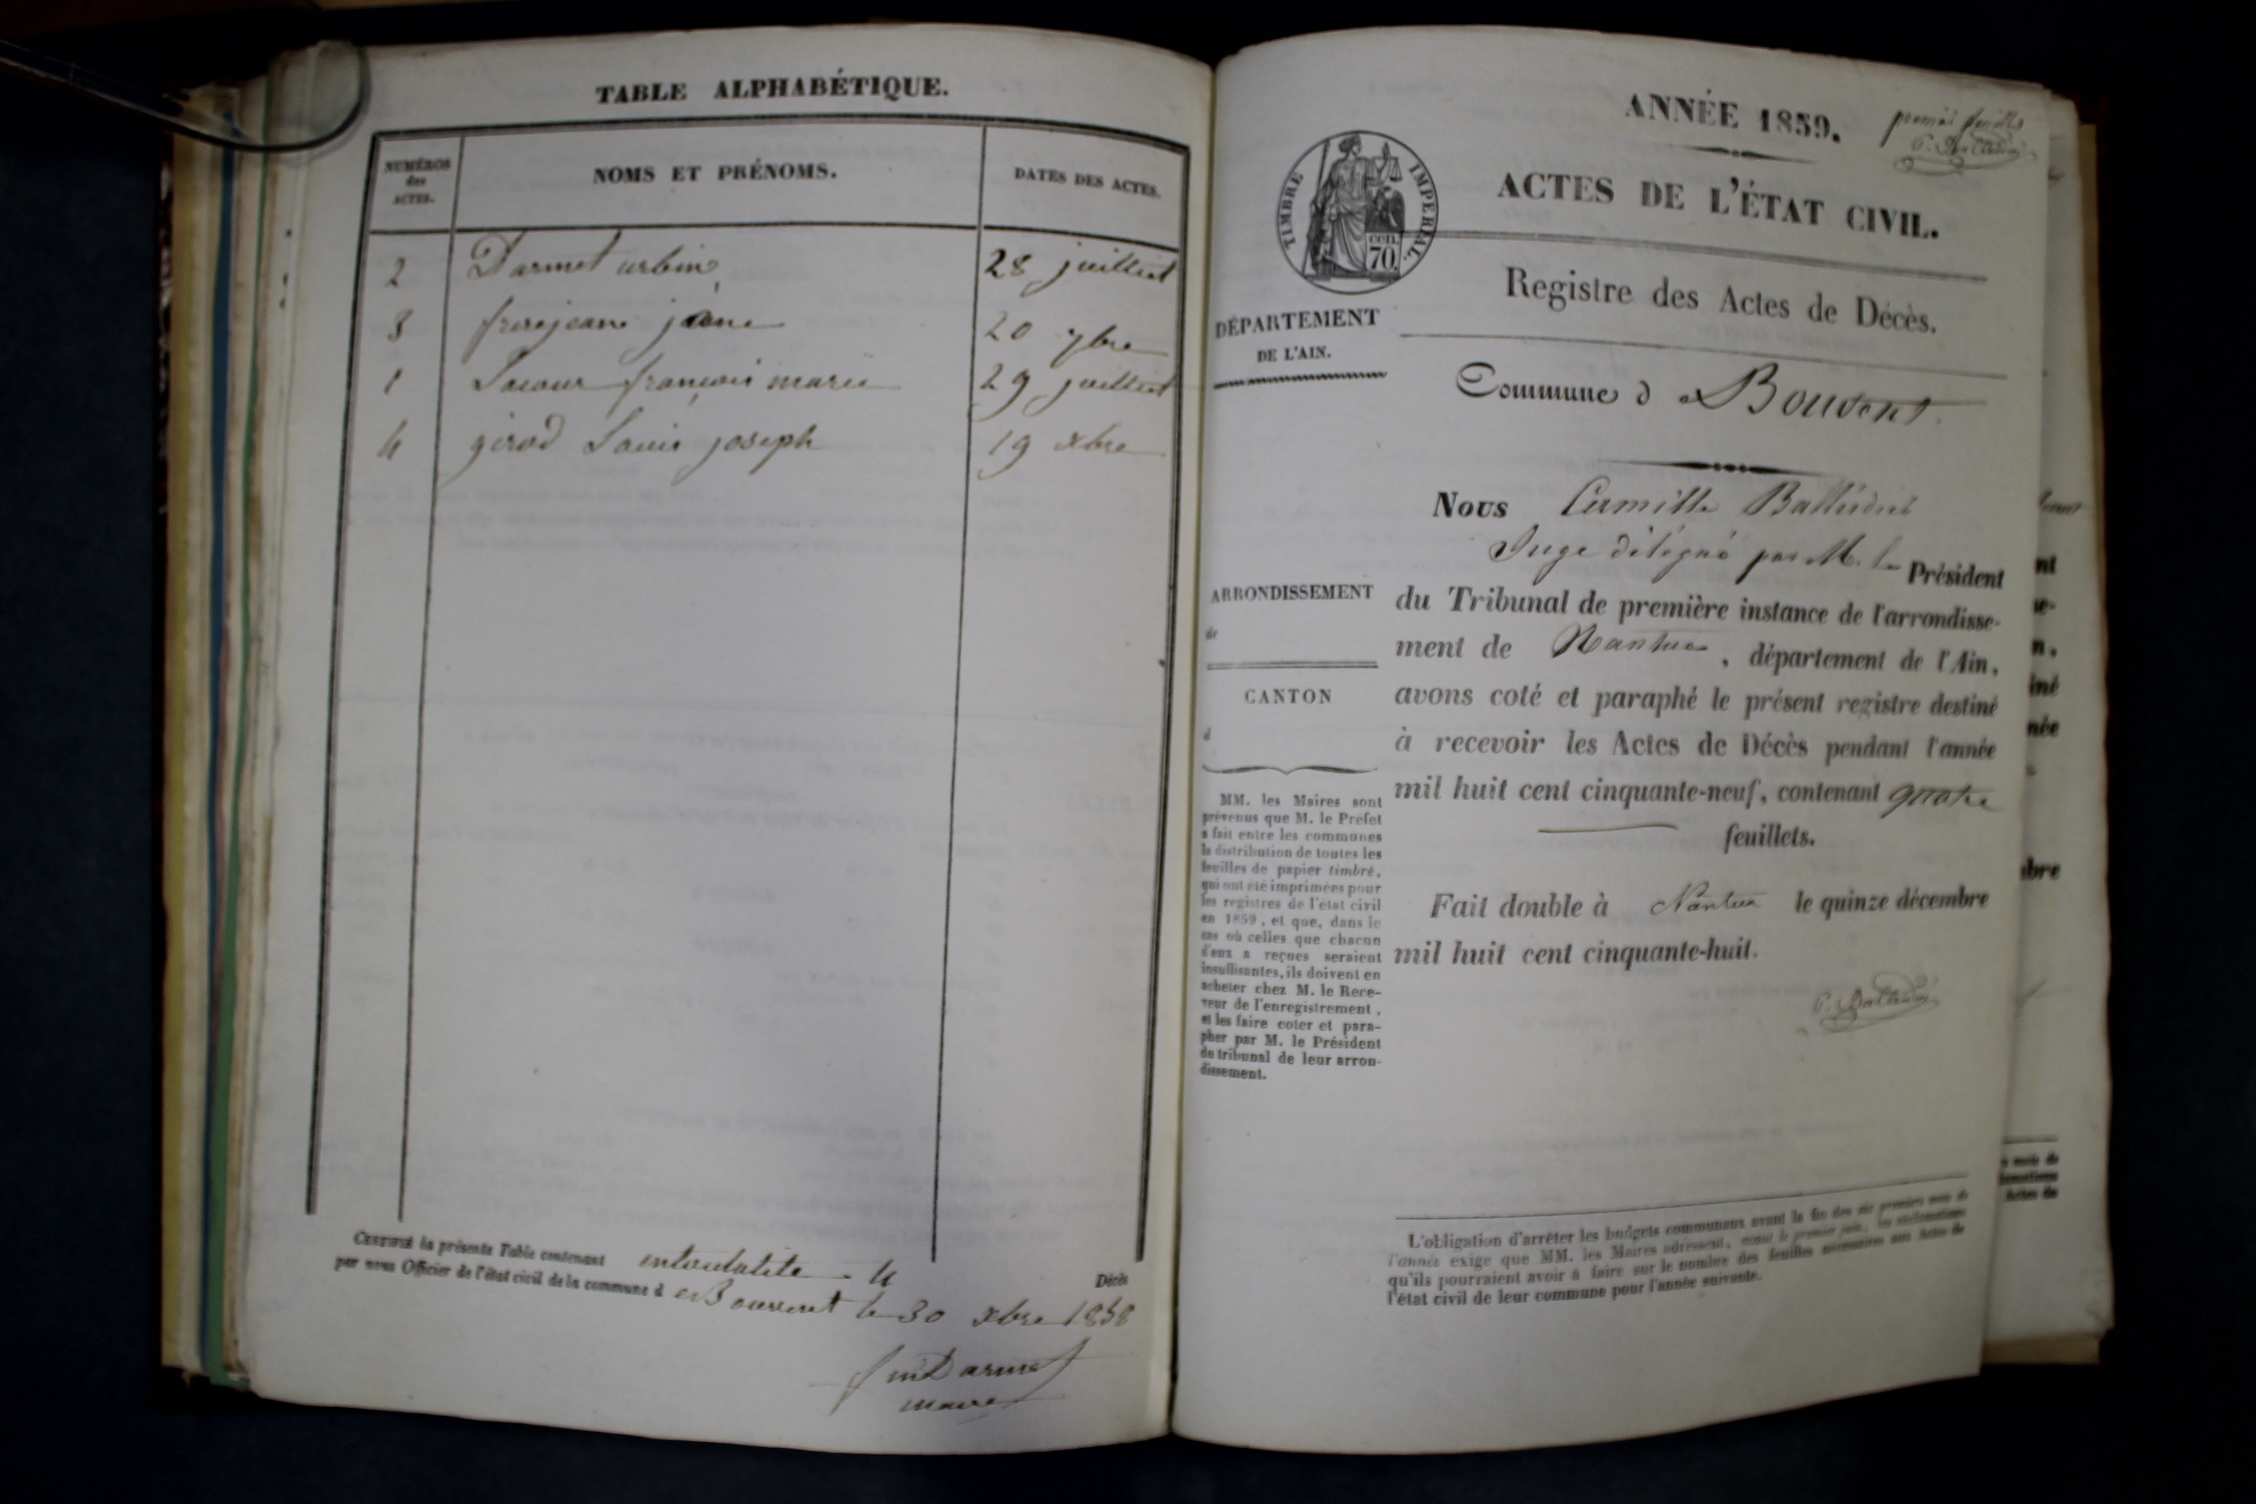 TABLE ALPHABÉTIQUE.
NUMÉROS
des
ACTES.
NOMS ET PRÉNOMS.
DATES DES ACTES.
2 Darmet urbin 28 juillet
3 frerejean 20 7bre
1 françois marie 29 juillet
4 girod Louis joseph 19 xbre
CERTIFIÉ la présente Table contenant 4 Décès
par nous Officier de l'état civil de la commune d e Bouvent le 30 xbre 1858
Darmet
maire
ANNÉE 1859.
TIMBRE IMPERIAL.
CEN.
70.
ACTES DE L'ÉTAT CIVIL.
Registre des Actes de Décès.
DÉPARTEMENT
DE L'AIN.
Commune d e Bouvent.
Nous Camille
Juge délégué par M. le Président
ARRONDISSEMENT
de
CANTON
d
du Tribunal de première instance de l'arrondisse-
ment de Nantua, département de l'Ain,
avons coté et paraphé le présent registre destiné
à recevoir les Actes de Décès pendant l'année
mil huit cent cinquante-neuf, contenant quatre
feuillets.
Fait double à Nantua le quinze décembre
mil huit cent cinquante-huit.
MM. les Maires sont
prévenus que M. le Préfet
a fait entre les communes
la distribution de toutes les
feuilles de papier timbré,
qui ont été imprimées pour
les registres de l'état civil
en 1859, et que, dans le
cas où celles que chacun
d'eux a reçues seraient
insuffisantes, ils doivent en
acheter chez M. le Rece-
veur de l'enregistrement,
et les faire coter et para-
pher par M. le Président
du tribunal de leur arron-
dissement.
L'obligation d'arrêter les budgets communaux avant la fin des six premiers mois de
l'année exige que MM. les Maires adressent, avant le premier juin, les réclamations
qu'ils pourraient avoir à faire sur le nombre des feuilles nécessaires aux Actes de
l'état civil de leur commune pour l'année suivante.